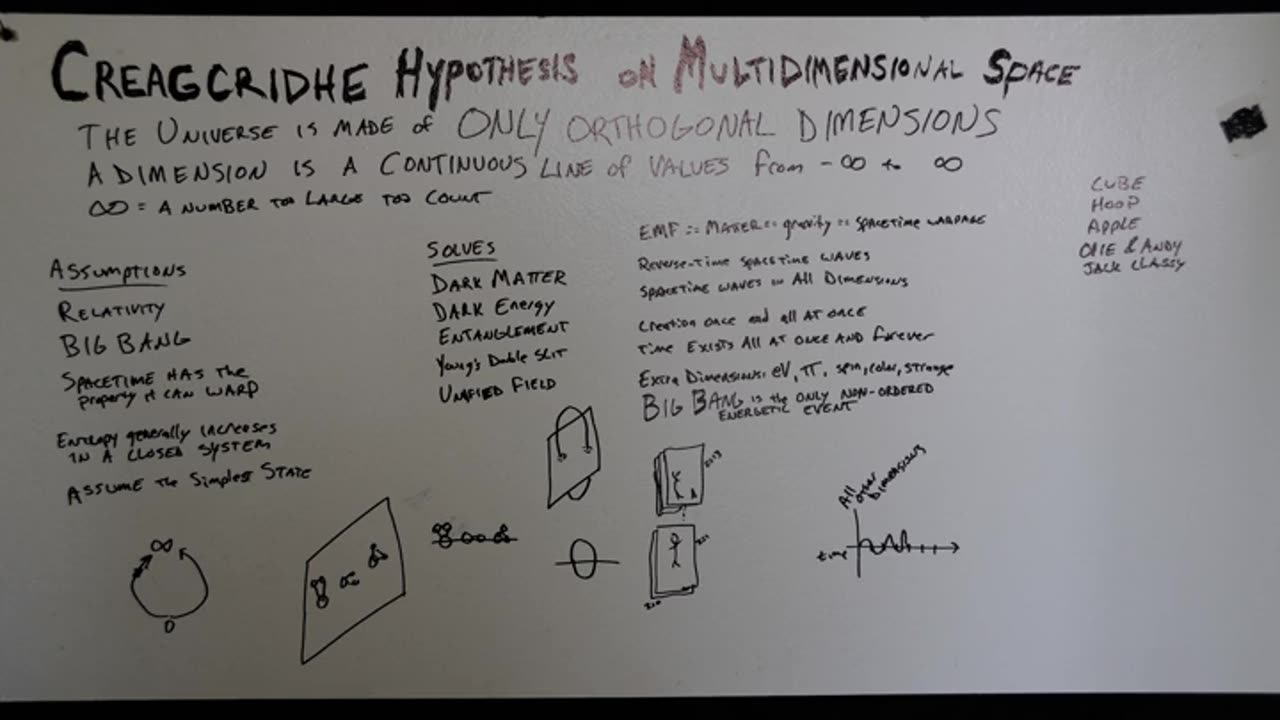 CREAGCRIDHE HYPOTHESIS ON MULTIDIMENSIONAL SPACE
THE UNIVERSE IS MADE OF ONLY ORTHOGONAL DIMENSIONS
A DIMENSION IS A CONTINUOUS LINE OF VALUES FROM -∞ to ∞
∞ = A NUMBER TOO LARGE TOO COUNT
ASSUMPTIONS
RELATIVITY
BIG BANG
SPACETIME HAS THE
PROPERTY IT CAN WARP
ENTROPY generally INCREASES
IN A CLOSED SYSTEM
ASSUME THE SIMPLEST STATE
SOLVES
DARK MATTER
DARK Energy
ENTANGLEMENT
YOUNG'S Double SLIT
UNIFIED FIELD
EMF :: MATTER :: gravity :: SPACETIME WARPAGE
REVERSE-TIME SPACETIME WAVES
SPACETIME WAVES IN ALL DIMENSIONS
CREATION ONCE and all AT ONCE
TIME EXISTS ALL AT ONCE AND forever
EXTRA DIMENSIONS: eV, π, spin, color, strange
BIG BANG is the ONLY NON-ORDERED
ENERGETIC EVENT
CUBE
HOOP
APPLE
OLLIE & ANDY
JACK CLASSY
∞
0
All
other
Dimensions
time